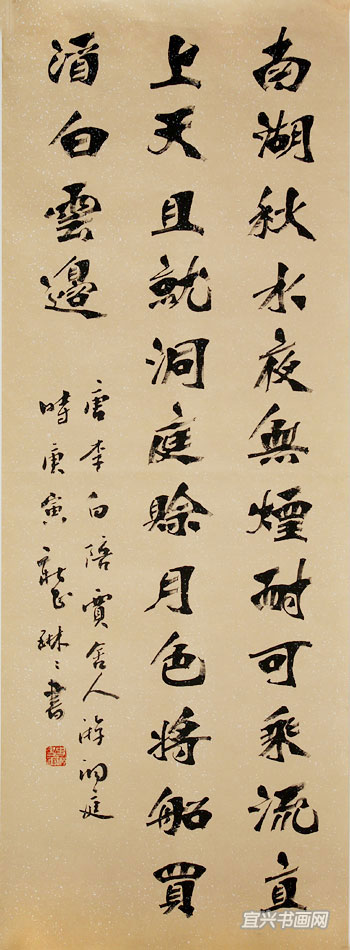 南湖秋水夜無煙耐可乘流直
上天且就洞庭賒月色將船買
酒白雲邊
唐李白陪賈舍人游洞庭
時庚寅新正琳〻書
宜兴书画网